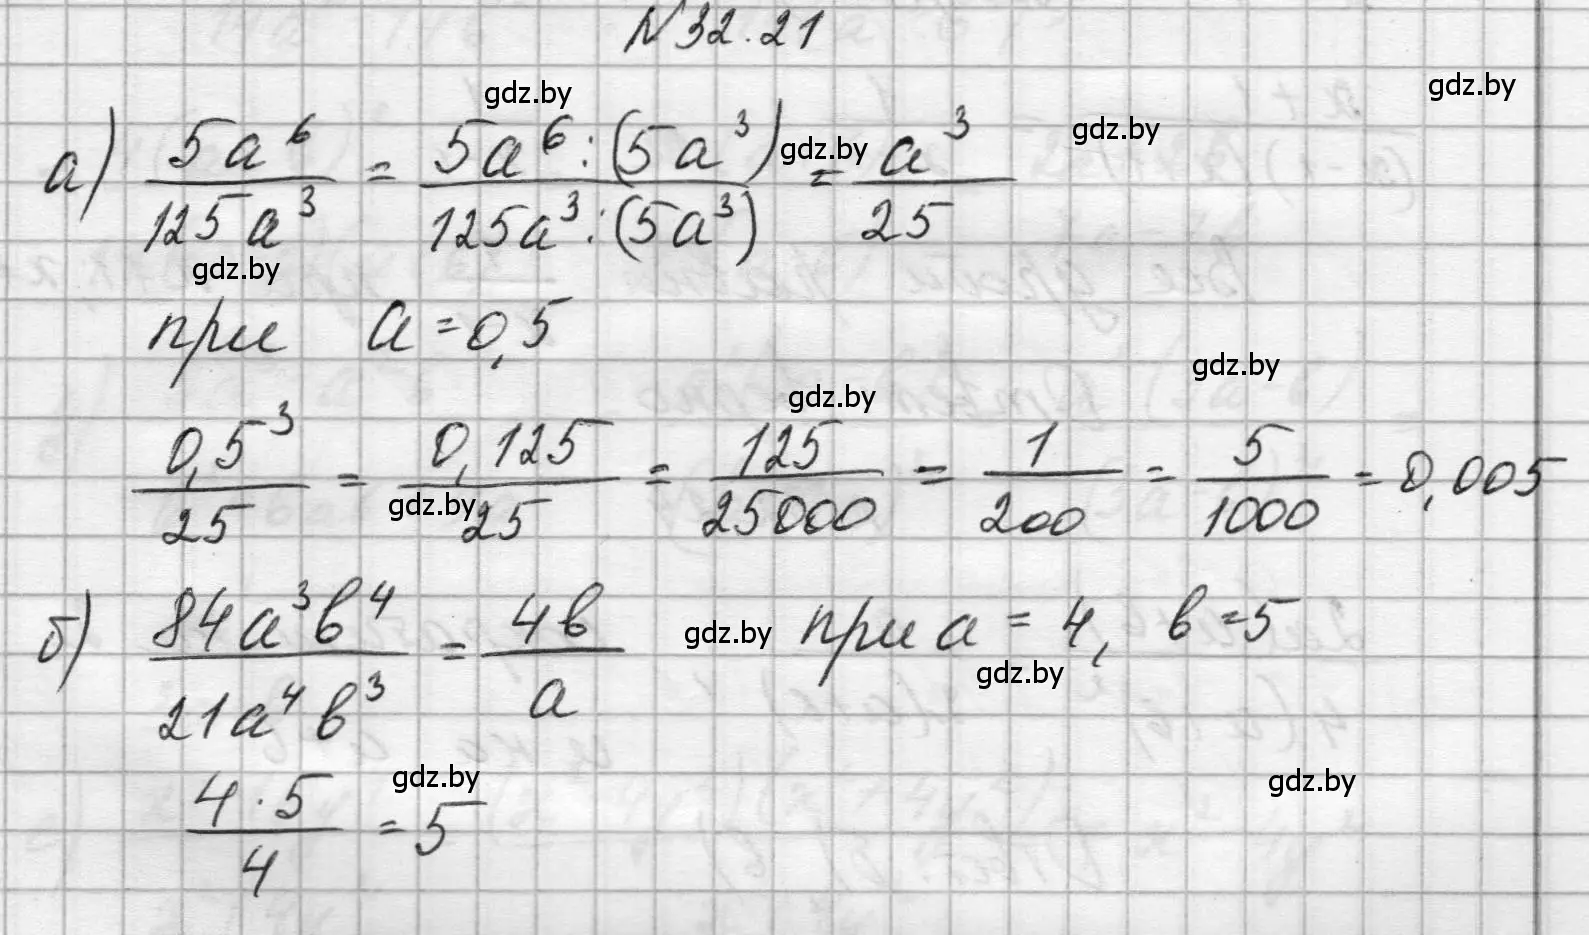 N 32.21
gdz.by
gdz.by
gdz.by
gdz.by
а) 5a⁶/125a³ = 5a⁶:(5a³)/125a³:(5a³) = a³/25
gdz.by
при a = 0,5
gdz.by
gdz.by
0,5³/25 = 0,125/25 = 125/25000 = 1/200 = 5/1000 = 0,005
gdz.by
б) 84a³b⁴/21a⁴b³ = 4b/a при a = 4, b = 5
gdz.by
gdz.by
4·5/4 = 5
gdz.by
gdz.by